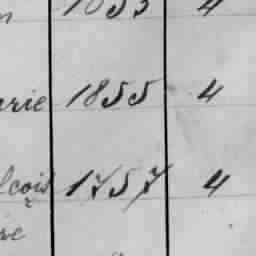 1855 4
arie 1855 4
lçois 1757 4